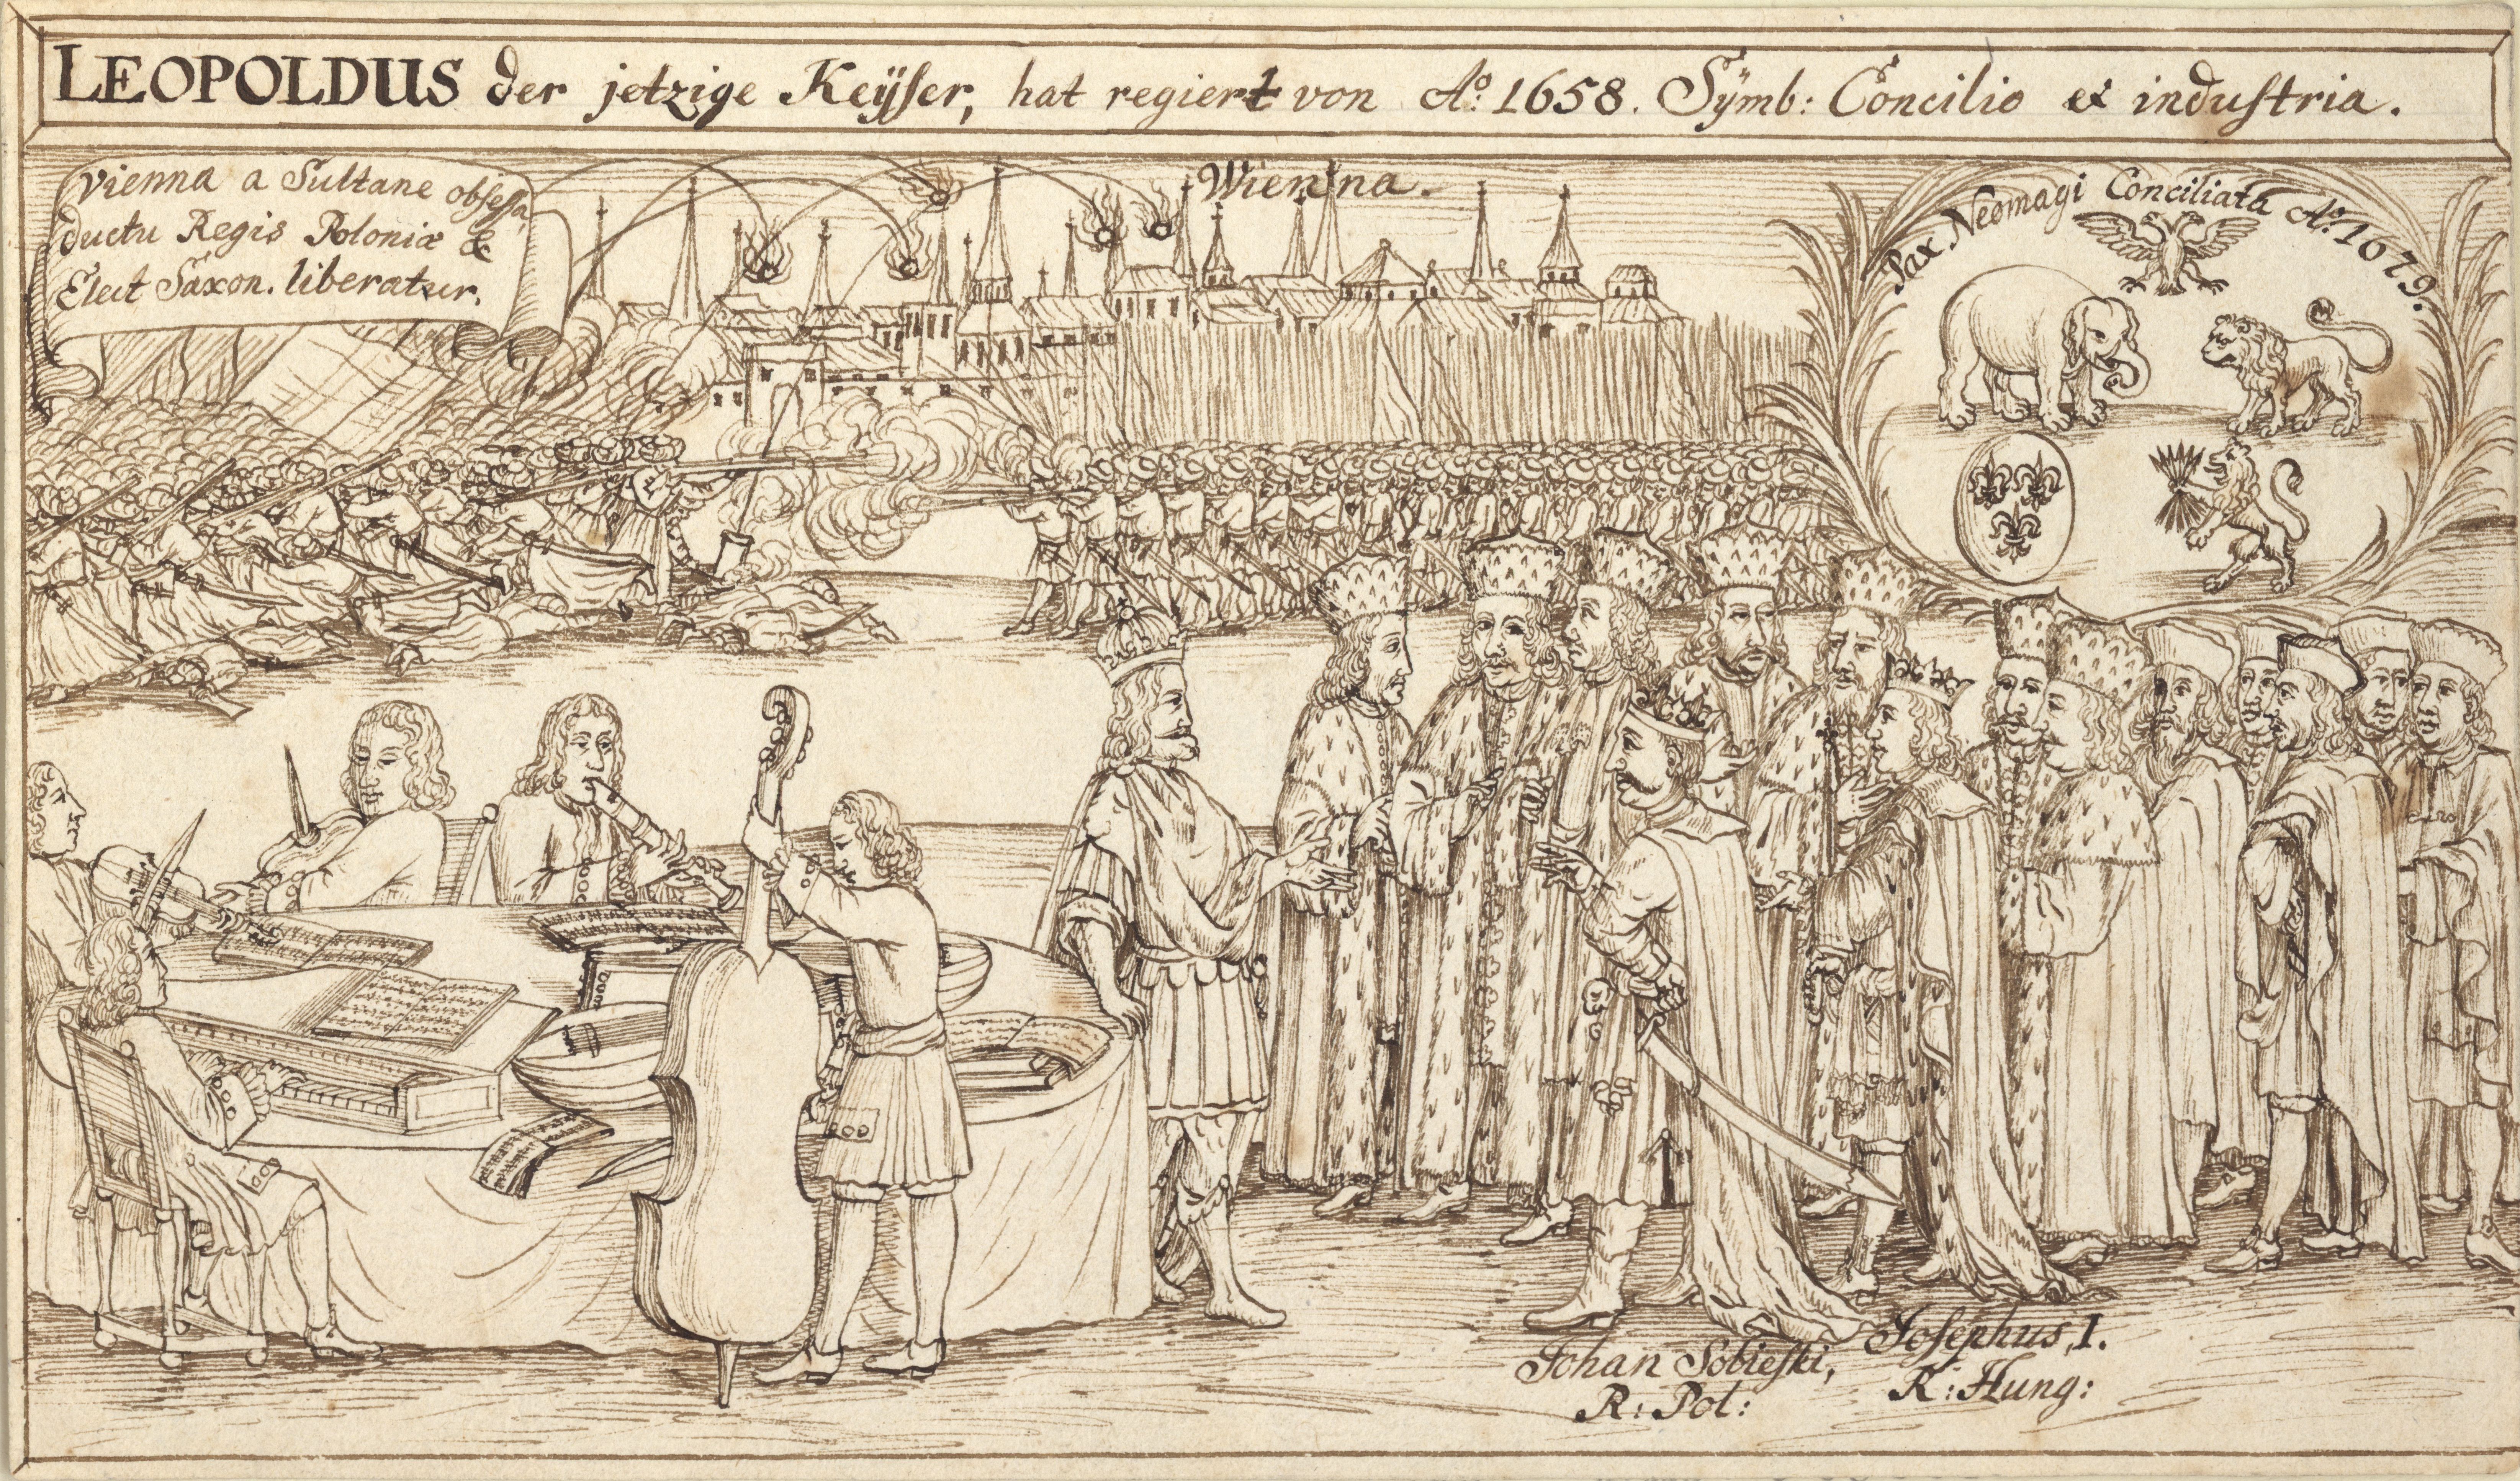 LEOPOLDUS der jetzige Keÿser, hat regiert von Aº: 1658. Sÿmb: Concilio et industria.
Vienna a Sultane obsessa,
ductu Regis Poloniæ &
Elect Saxon. liberatur.
Wienna.
Pax Neomagi Conciliata Aº: 1679.
Johan Sobieski,
R: Pol:
Josephus, I.
R: Hung: